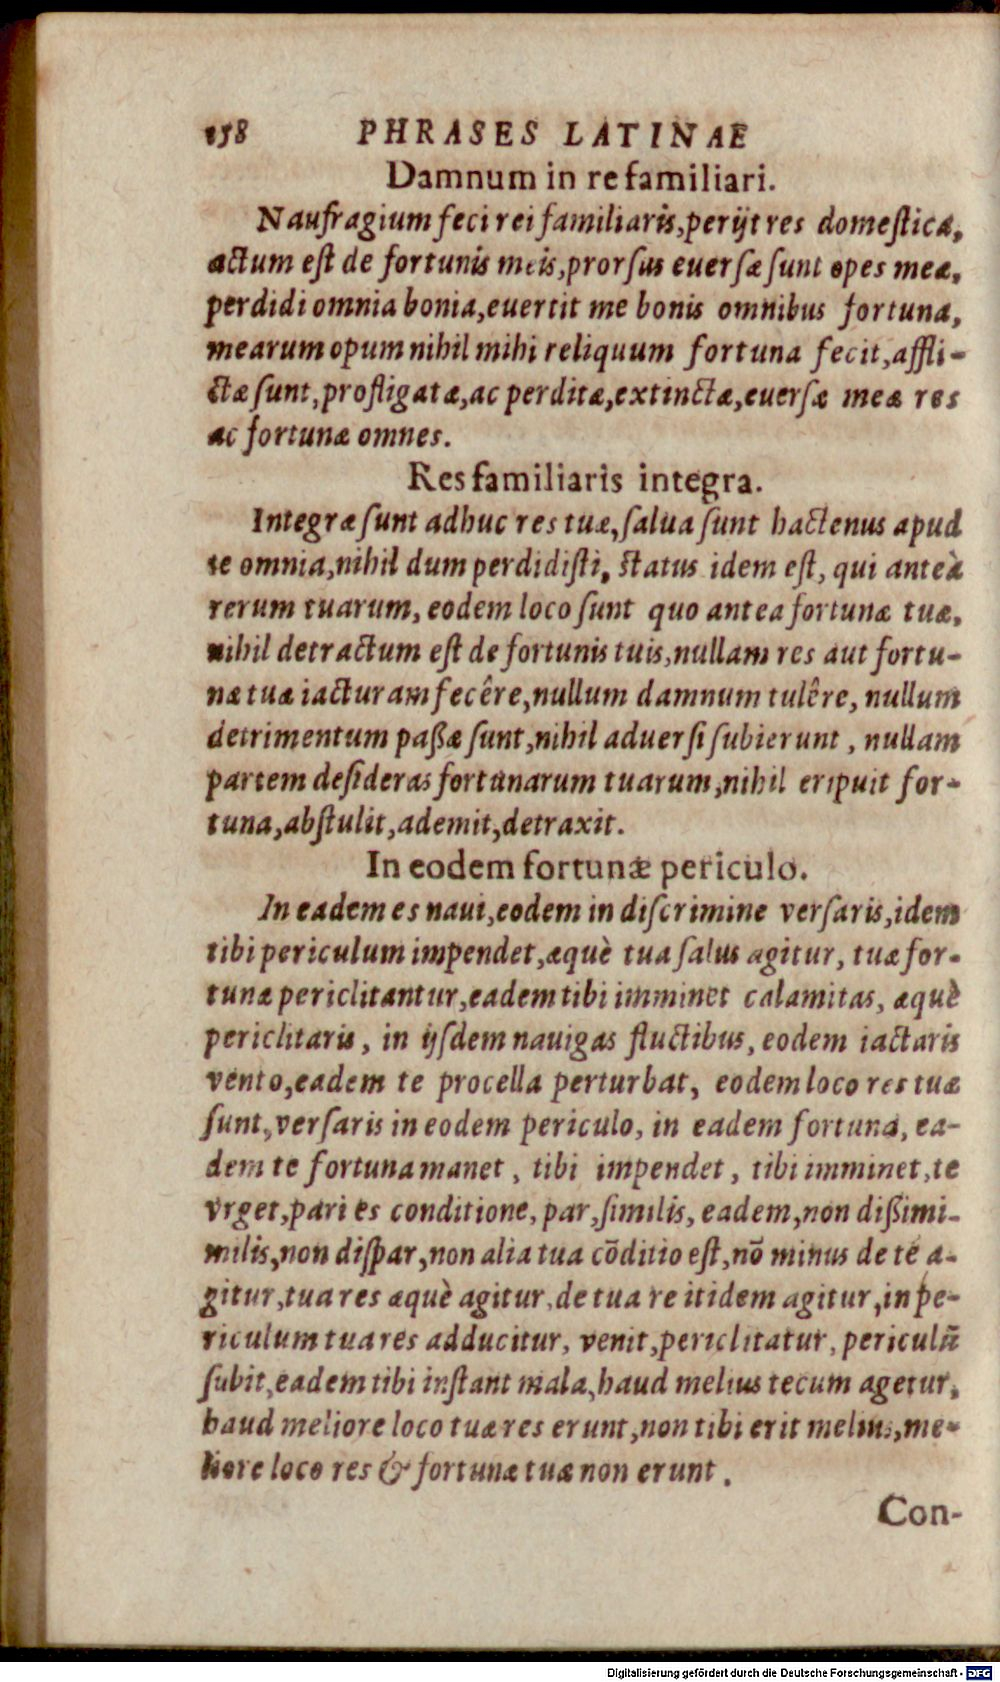 158 PHRASES LATINAE
Damnum in re familiari.
Naufragium feci rei familiaris, perijt res domestica,
actum est de fortunis meis, prorsus euersæ sunt opes meæ,
perdidi omnia bonia, euertit me bonis omnibus fortuna,
mearum opum nihil mihi reliquum fortuna fecit, affli-
ctæ sunt, profligatæ, ac perditæ, extinctæ, euersæ meæ res
ac fortunæ omnes.
Res familiaris integra.
Integræ sunt adhuc res tuæ, salua sunt hactenus apud
te omnia, nihil dum perdidisti, status idem est, qui anteà
rerum tuarum, eodem loco sunt quo antea fortunæ tuæ,
nihil detractum est de fortunis tuis, nullam res aut fortu-
næ tuæ iacturam fecêre, nullum damnum tulêre, nullum
detrimentum paßæ sunt, nihil aduersi subierunt, nullam
partem desideras fortunarum tuarum, nihil eripuit for-
tuna, abstulit, ademit, detraxit.
In eodem fortunæ periculo.
In eadem es naui, eodem in discrimine versaris, idem
tibi periculum impendet, æquè tua salus agitur, tuæ for-
tunæ periclitantur, eadem tibi imminet calamitas, æquè
periclitaris, in ijsdem nauigas fluctibus, eodem iactaris
vento, eadem te procella perturbat, eodem loco res tuæ
sunt, versaris in eodem periculo, in eadem fortuna, ea-
dem te fortuna manet, tibi impendet, tibi imminet, te
vrget, pari es conditione, par, similis, eadem, non dißimi-
milis, non dispar, non alia tua cõditio est, nõ minus de te a-
gitur, tua res æquè agitur, de tua re itidem agitur, in pe-
riculum tua res adducitur, venit, periclitatur, periculũ
subit, eadem tibi instant mala, haud melius tecum agetur,
haud meliore loco tuæ res erunt, non tibi erit melius, me-
liore loco res & fortunæ tuæ non erunt.
Con-
Digitalisierung gefördert durch die Deutsche Forschungsgemeinschaft - DFG